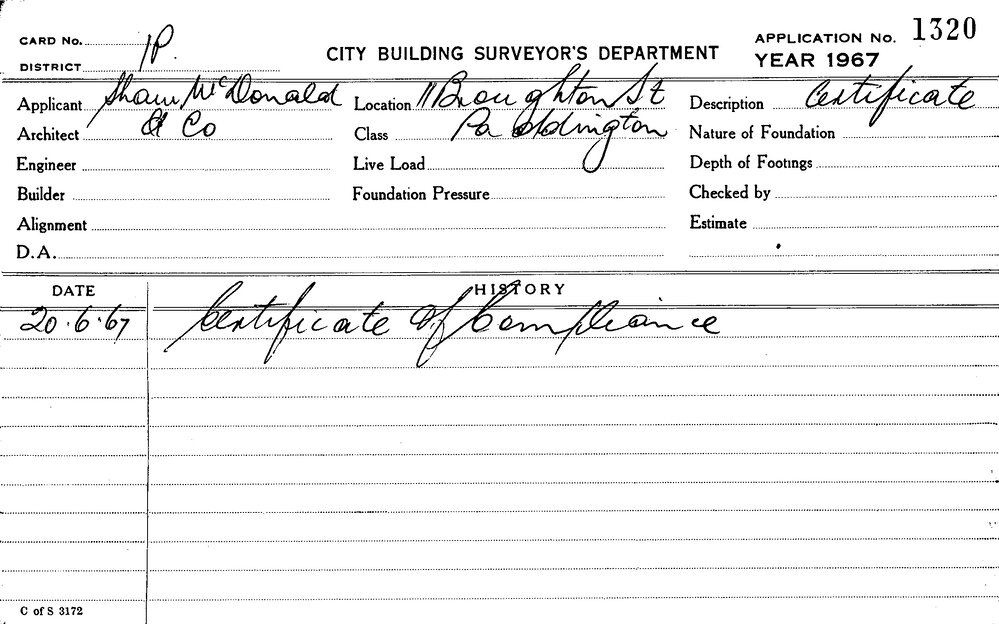 CARD No. 1P
DISTRICT
CITY BUILDING SURVEYOR'S DEPARTMENT
APPLICATION No. 1320
YEAR 1967
Applicant Shaw McDonald Location 11 Broughton St Description Certificate
Architect & Co Class Paddington Nature of Foundation
Engineer Live Load Depth of Footings
Builder Foundation Pressure Checked by
Alignment Estimate
D.A.
DATE HISTORY
20.6.67 Certificate of Compliance
C of S 3172